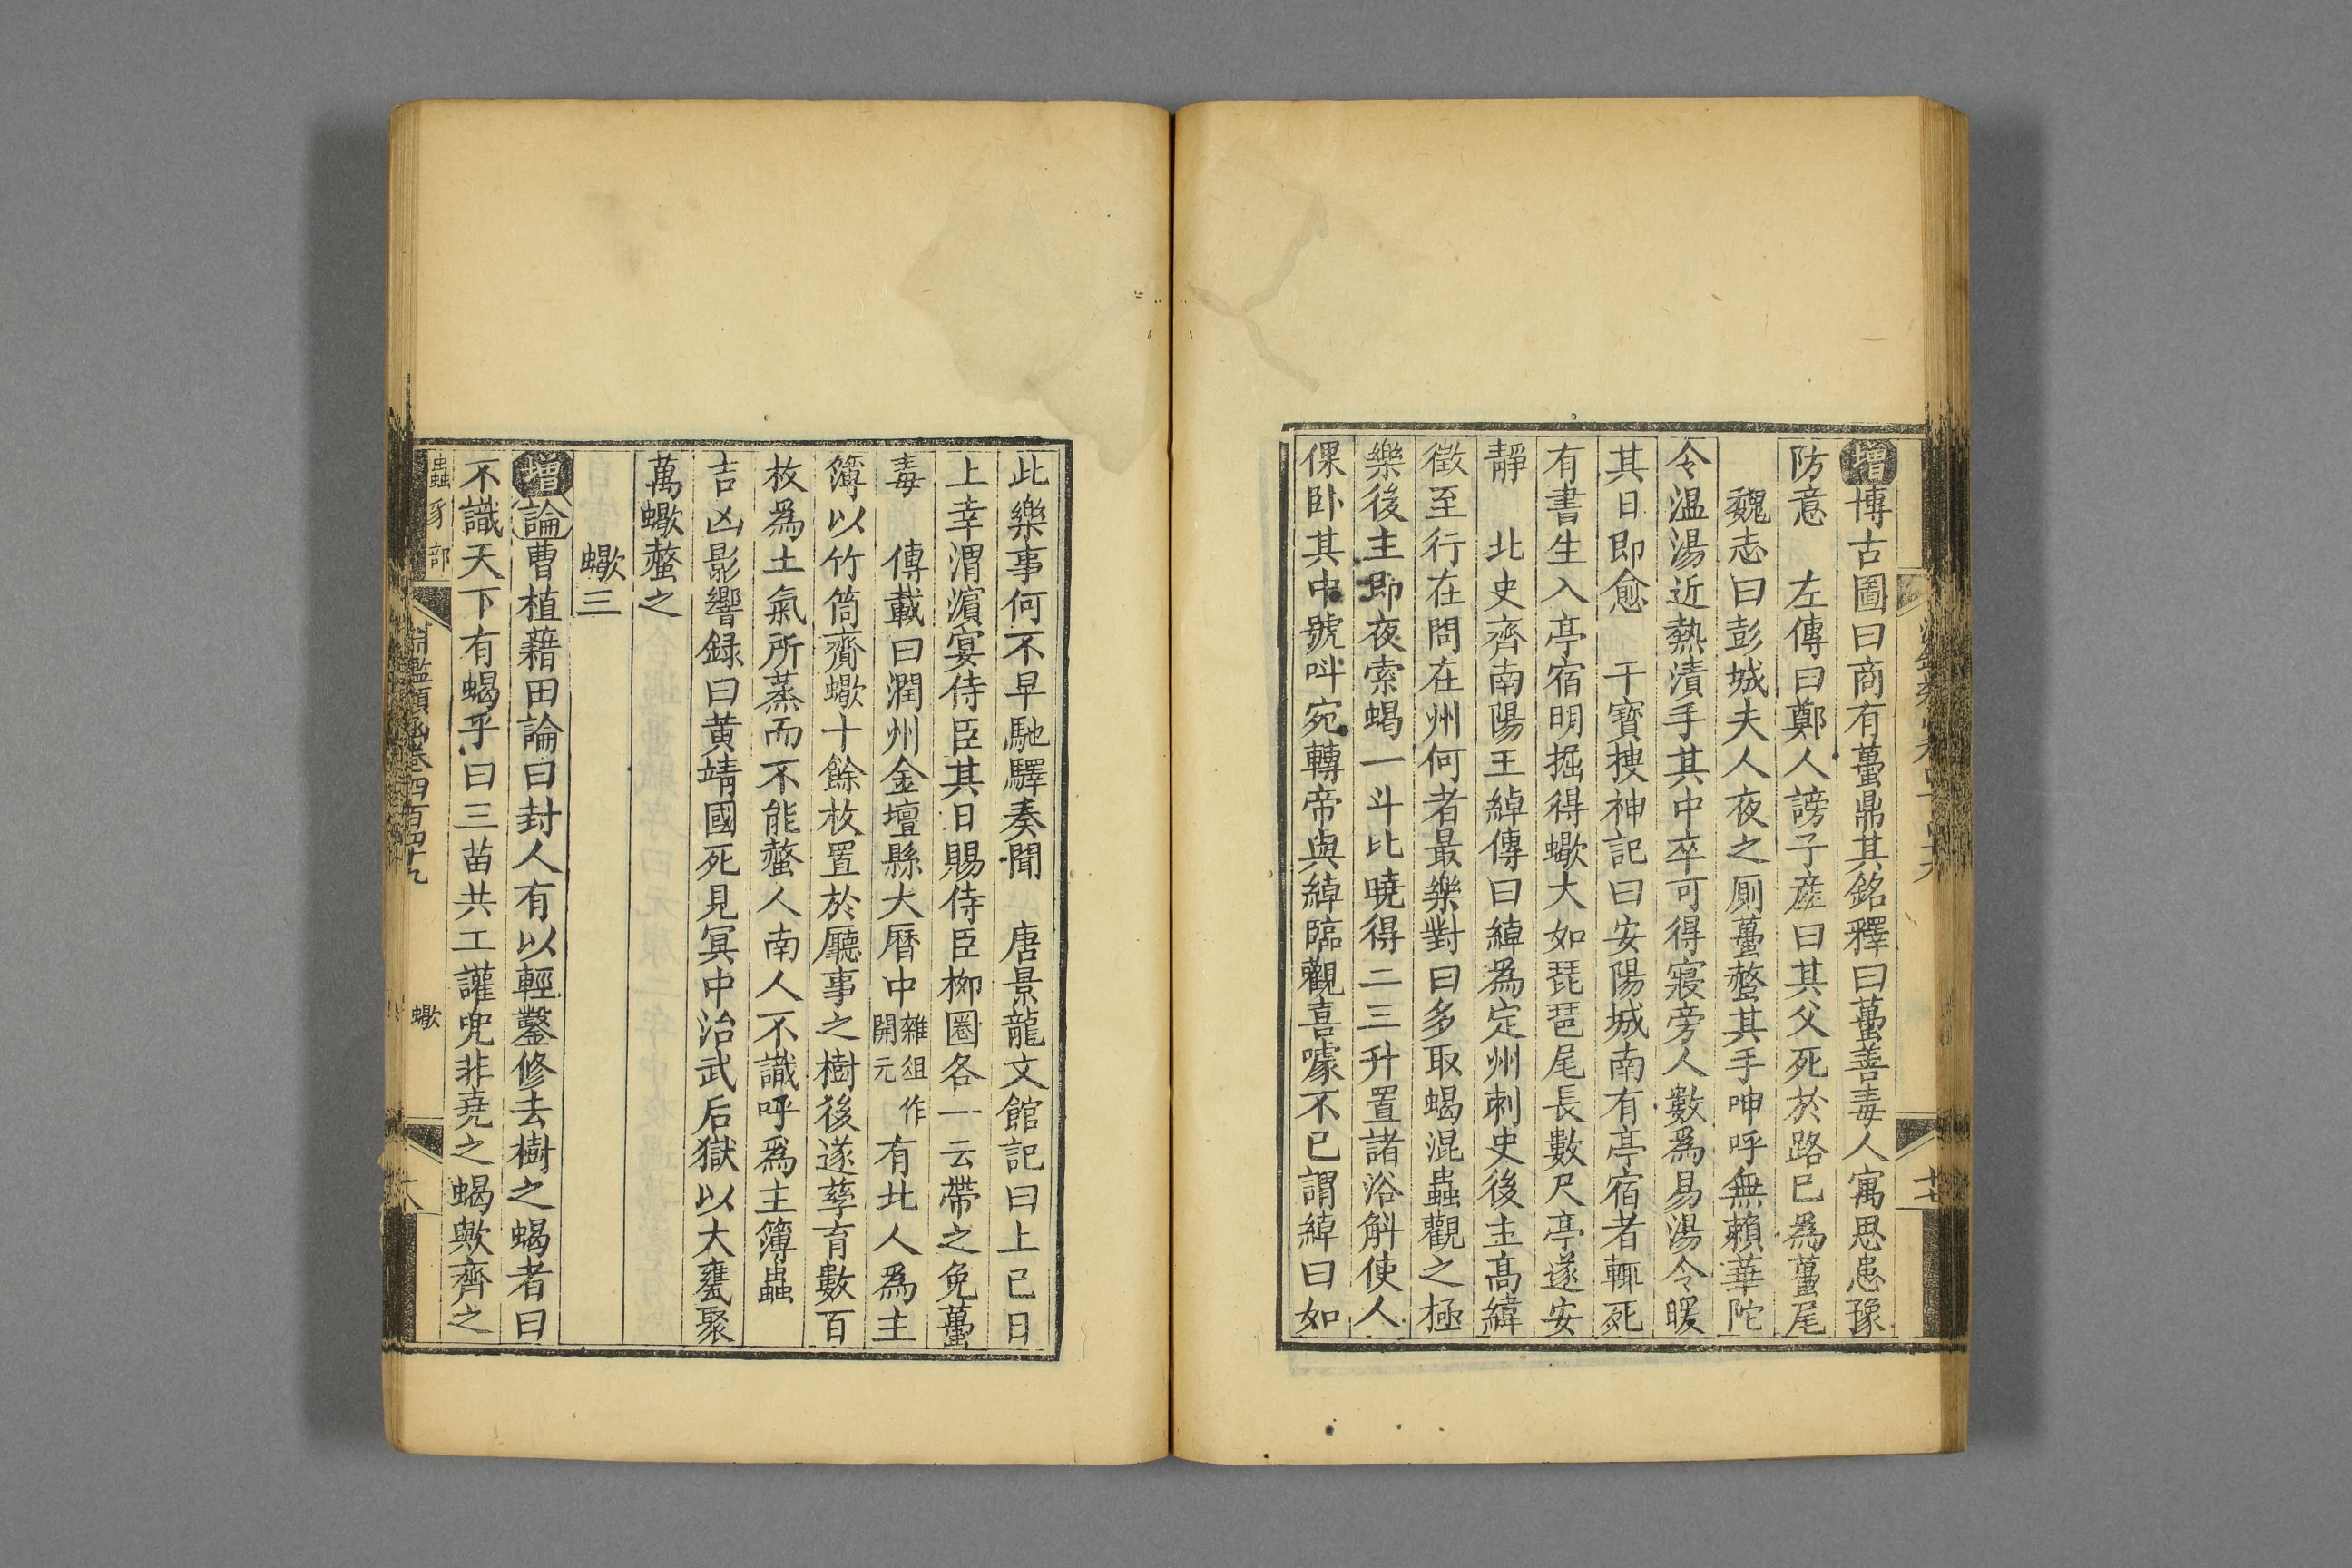 增博古圖曰商有蠆鼎其銘釋曰蠆善毒人寓思患豫
防意　左傳曰鄭人謗子產曰其父死於路已爲蠆尾
魏志曰彭城夫人夜之厠蠆螫其手呻呼無賴華陀
令温湯近熱漬手其中卒可得寢旁人數爲易湯令暖
其日即愈　干寳搜神記曰安陽城南有亭宿者輒死
有書生入亭宿明掘得蠍大如琵琶尾長數尺亭遂安
靜　北史齊南陽王綽傳曰綽爲定州刺史後主髙緯
徵至行在問在州何者最樂對曰多取蝎混蟲觀之極
樂後主即夜索蝎一斗比曉得二三升置諸浴斛使人
倮卧其中號叫宛轉帝與綽臨觀喜噱不已謂綽曰如
十七
此樂事何不早馳驛奏聞　唐景龍文館記曰上巳日
上幸渭濵宴侍臣其日賜侍臣栁圈各一云帶之免蠆
毒　傳載曰潤州金壇縣大曆中雜俎作開元有北人爲主
簿以竹筒齎蠍十餘枚置於廳事之樹後遂孳育數百
枚爲土氣所蒸而不能螫人南人不識呼爲主簿蟲
吉凶影響録曰黄靖國死見冥中治武后獄以大甕聚
萬蠍螫之
蠍三
增論曹植藉田論曰封人有以輕鑿修去樹之蝎者曰
不識天下有蝎乎曰三苗共工讙兜非堯之蝎歟齊之
蟲豸部
淵鑑類函卷四百四十九
蠍